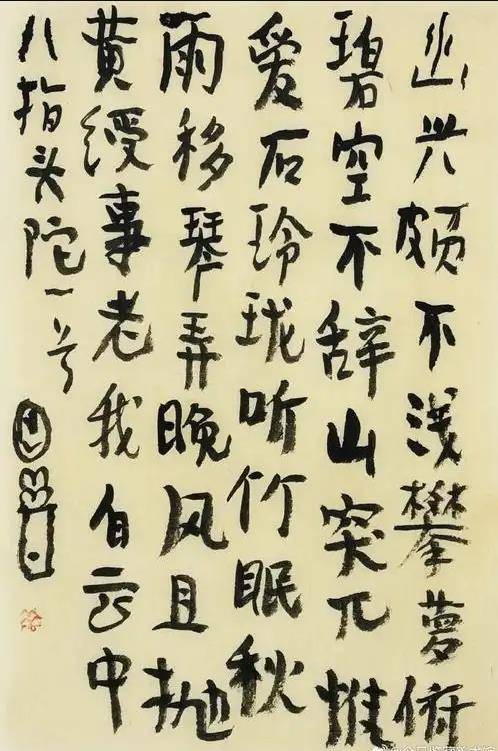 幽兴颇不浅攀萝俯
碧空不辞山突兀惟
爱石玲珑听竹眠秋
雨移琴弄晚风且抛
黄绶事老我白云中
八指头陀一首